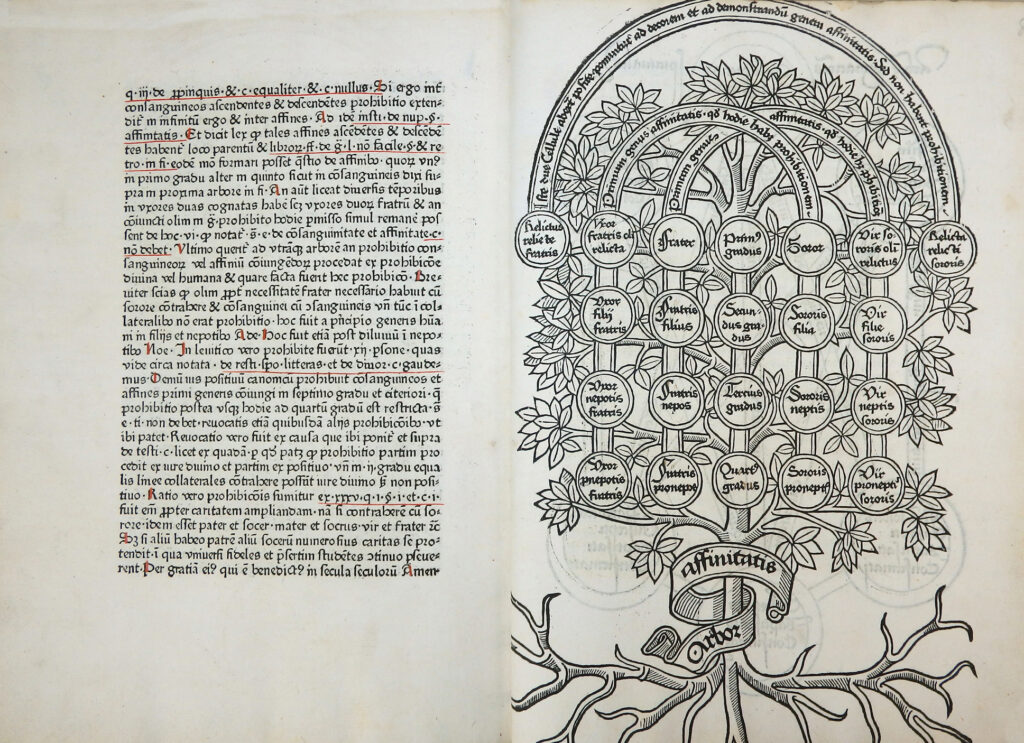 q · iij · de ꝓpinquis · & · c · equaliter · & · c · nullus · Si ergo int̄
consanguineos ascendentes & descendētes prohibitio exten-
dit̄ in infinitū ergo & inter affines · Ad idē insti · de nup · §
affinitatis · Et dicit lex ꝙ tales affines ascēdētes & descēdē
tes habent̄ loco parentū & libroꝝ · ff · de
tro · in fi · eodē mō formari posset q̄stio de affinibꝰ · quoꝝ vnꝰ
in primo gradu alter in quinto sicut in cōsanguineis dixi su-
pra in proxima arbore in fi · An aūt liceat diversis tēporibus
in vxores duas cognatas habē seꝫ vxores duoꝝ fratrū & an
cōiuncti olim in ḡ · prohibito hodie ꝑmisso simul remanē pos
sent de hoc · vi · ꝙ notat̄ · s̄ · e · de cōsanguinitate et affinitate · c ·
nō debet · Vltimo querit̄ ad vtrāqꝫ arborē an prohibitio con-
sanguineoꝝ vel affiniū cōiungēdoꝝ procedat ex prohibicōe
diuina vel humana & quare facta fuerit hec prohibicō · Bre-
uiter scias ꝙ olim ꝓpt̄ necessitatē frater necessario habuit cū
sorore cōtrahere & cōsanguinei cū ↄsanguineis vn̄ tūc ī col-
lateralibꝰ nō erat prohibitio · hoc fuit a pricipio generis hūa
ni in filijs et nepotibꝰ Ade · Hoc fuit etiā post diluuiū ī nepo-
tibꝰ Noe · In leuitico vero prohibite fuerūt · xij · ꝑsone · quas
vide circa notata · de resti · spo · litteras · et de diuor · c · gaude-
mus · Demū ius positiuū canonicū prohibuit cōsanguineos et
affines primi generis cōiungi in septimo gradu et citeriori · q̄
prohibitio postea vsqꝫ hodie ad quartū gradū est restricta · s̄
e · ti · non debet · reuocatis etiā quibusdā alijs prohibicōibꝰ · vt
ibi patet · Reuocatio vero fuit ex causa que ibi ponit̄ et supra
de testi · c · licet ex quadā · p · qd̄ patꝫ ꝙ prohibitio partim pro
cedit ex iure diuino et partim ex positiuo · vn̄ in · ij · gradu equa
lis linee collaterales cōtrahere possūt iure diuino sꝫ non posi-
tiuo · Ratio vero prohibicōis sumitur ex · xxxv · q · i · § · i · et · c · i ·
fuit em̄ ꝓpter caritatem ampliandam · nā si contrahere cū so-
rore · idem esset pater et socer · mater et socrus · vir et frater ⁊c̄
Sꝫ si aliū habeo patrē aliū socerū numerosius caritas se pro-
tendit · ī qua vniuersi fideles et p̄sertim studētes ↄtinuo ꝑseue-
rent · Per gratiā eiꝰ qui ē benedictꝰ in secula seculoꝝ Amen
Iste due Cellule aduerse posite ponuntur ad decorem et ad demonstrandū genera affinitatis · Sed non habent prohibitionem
Primum genus affinitatis · qd̄ hodie habet prohibitionem
Primum genus affinitatis · qd̄ hodie hꝫ ꝓhibitioꝫ
Relictus relicte fratris
Vxor fratris olī relicta
Frater
Primꝰ gradus
Soror
Vir sororis olī relictus
Relicta relicti sororis
Vxor filij fratris
Fratris filius
Secundus gradus
Sororis filia
Vir filie sororis
Vxor nepotis fratris
Fratris nepos
Tercius gradus
Sororis neptis
Vir neptis sororis
Vxor pnepotis fratris
Fratris pronepos
Quartꝰ gradus
Sororis proneptꝭ
Vir proneptꝭ sororis
affinitatis
Arbor